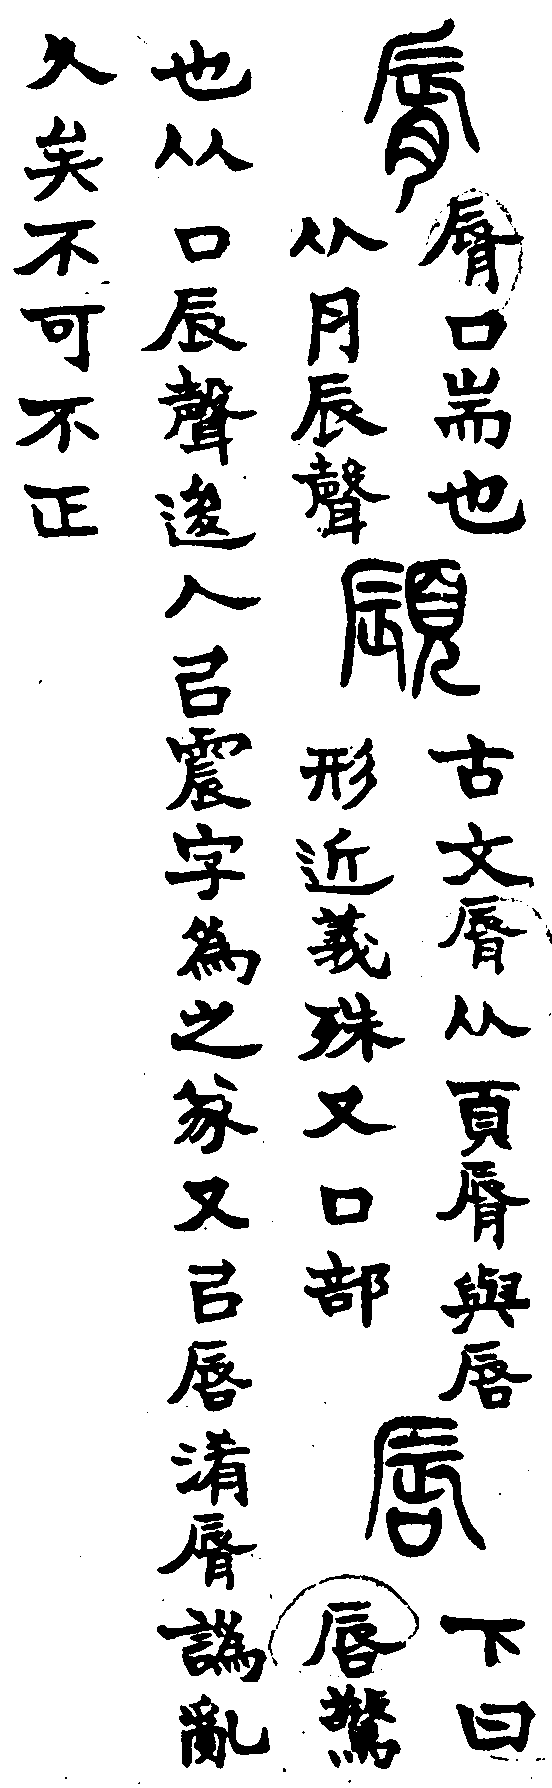 脣
脣口耑也
从月辰聲
𩓅
古文脣从頁脣與唇
形近義殊又口部
唇
下曰
唇驚
也从口辰聲後人㠯震字為之㒸又㠯唇淆脣譌亂
久矣不可不正